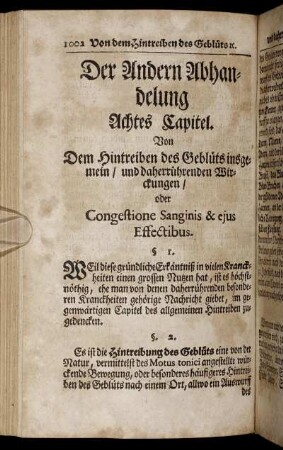 1002 Von dem Hintreiben des Geblüts ꝛc.
Der Andern Abhan-
delung
Achtes Capitel.
Von
Dem Hintreiben des Geblüts insge-
mein / und daherrührenden Wir-
ckungen /
oder
Congestione Sanginis & ejus
Effectibus.
§ 1.
WEil diese gründliche Erkäntniß in vielen Kranck-
heiten einen grossen Nutzen hat, ist es höchst-
nöthig, ehe man von denen daherrührenden besonde-
ren Kranckheiten gehörige Nachricht giebet, im ge-
genwärtigen Capitel des allgemeinen Hintreiben zu-
gedencken.
§. 2.
Es ist die Hintreibung des Geblüts eine von der
Natur, vermittelst des Motus tonici angestellte wür-
ckende Bewegung, oder besonderes häufigeres Hintrei-
ben des Geblüts nach einem Ort, allwo ein Auswurff
des